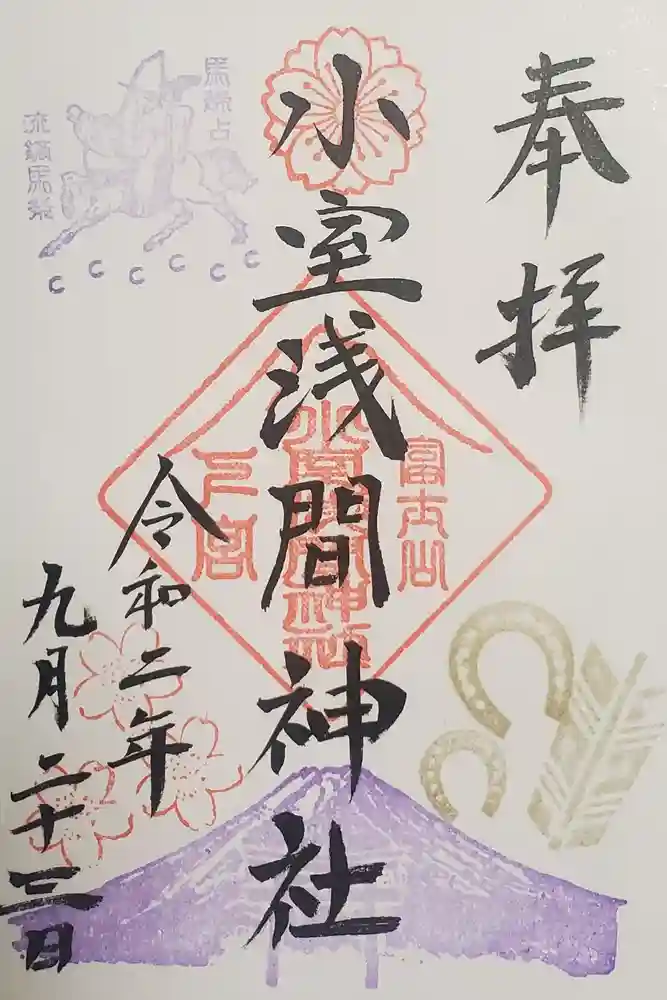 奉拝
富士山
小室浅間神社
小室浅間神社
下宮
令和二年
九月二十三日
馬蹄占
流鏑馬祭